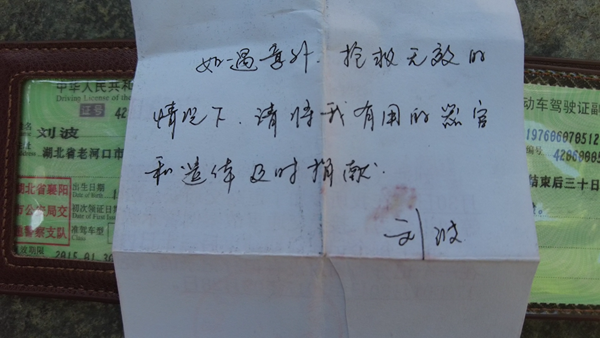 如遇意外.抢救无效的
情况下.请将我有用的器官
和遗体及时捐献.
刘波
中华人民共和
Driving License of the
证号 42
刘波
湖北省老河口市
湖北省襄阳
市公安局交
警察支队
出生日期
Date of Birth
初次领证日
Date of First
准驾车型
Class
有效期限
2015.01.30
动车驾驶证副
编号
结束后三十日